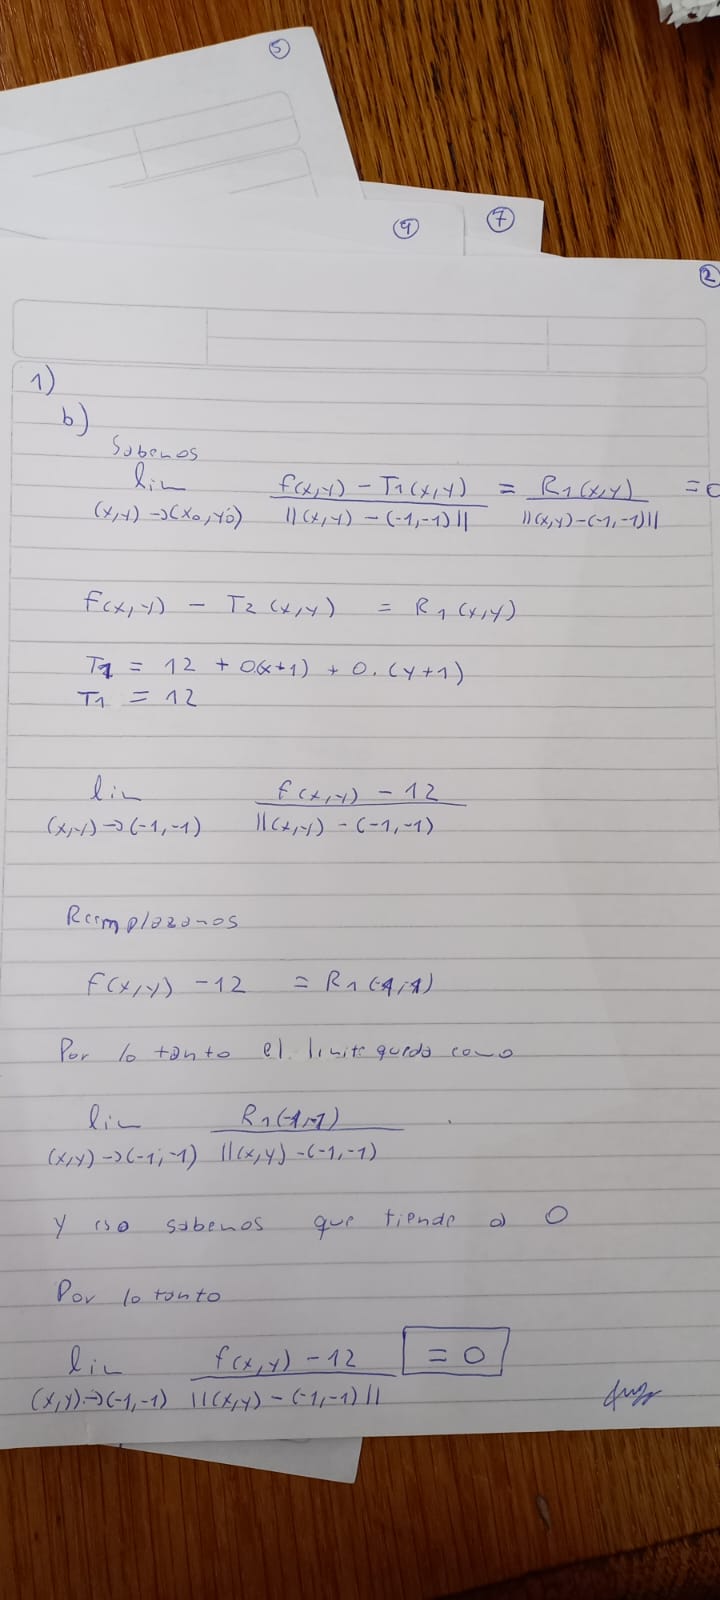 5
7
9
2
1)
b)
Sabemos
lim f(x,y) - T1(x,y) = R1(x,y) = 0
(x,y)->(x0,y0) ||(x,y) - (-1,-1)|| ||(x,y)-(-1,-1)||
f(x,y) - T2(x,y) = R1(x,y)
T1 = 12 + 0(x+1) + 0.(y+1)
T1 = 12
lim f(x,y) - 12
(x,y)->(-1,-1) ||(x,y) - (-1,-1)
Reemplazamos
f(x,y) - 12 = R1(-1,-1)
Por lo tanto el limite queda como
lim R1(-1,-1)
(x,y)->(-1,-1) ||(x,y)-(-1,-1)
y eso sabemos que tiende a 0
Por lo tanto
lim f(x,y) - 12 = 0
(x,y)->(-1,-1) ||(x,y) - (-1,-1)||